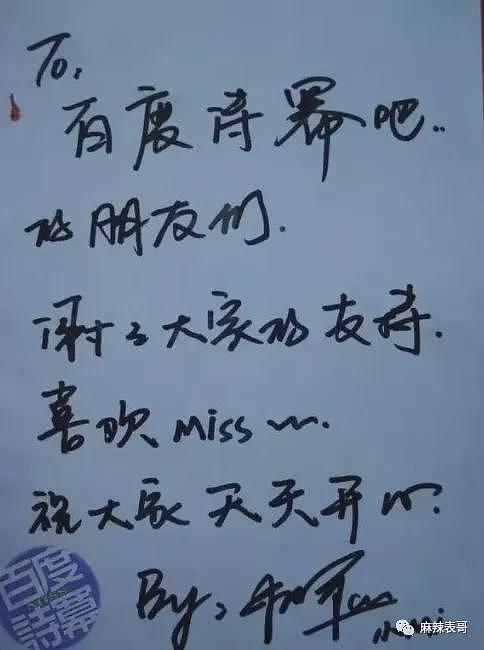 To.
百度诗幂吧..
的朋友们.
谢了大家的友持.
喜欢 Miss ~.
祝大家 天天开心.
By:
百度
MISS
詩冪
麻辣表哥